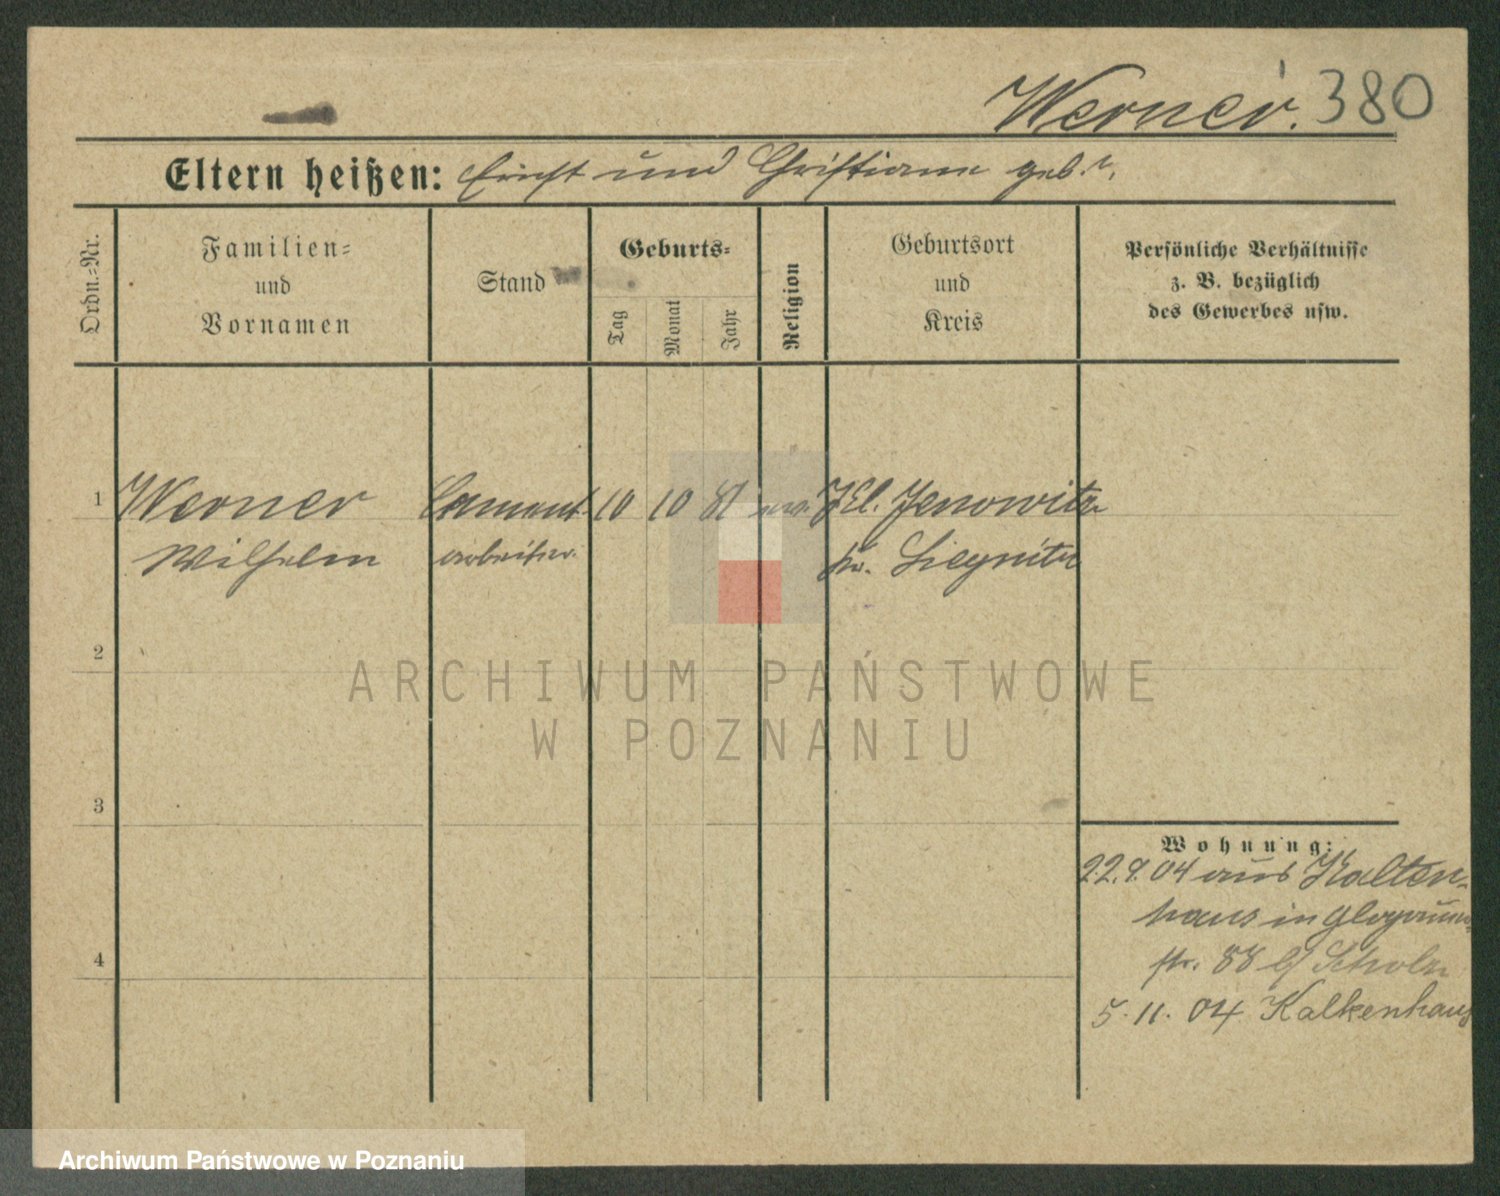 Werner. 380
Eltern heißen: Ernst und Christiane geb. ?.
Ordn.=Nr.
Familien=
und
Vornamen
Stand
Geburts=
Tag
Monat
Jahr
Religion
Geburtsort
und
Kreis
Persönliche Verhältnisse
z. B. bezüglich
des Gewerbes usw.
1 Werner Cement- 10 10 81 ev. Kl. Jenowitz
Wilhelm arbeiter Kr. Liegnitz
2
3
4
Wohnung:
22.9.04 aus Kalten-
haus in Glogauer-
str. 88 b/ Scholz
5. 11. 04 Kalkenhaus
ARCHIWUM PAŃSTWOWE
W POZNANIU
Archiwum Państwowe w Poznaniu